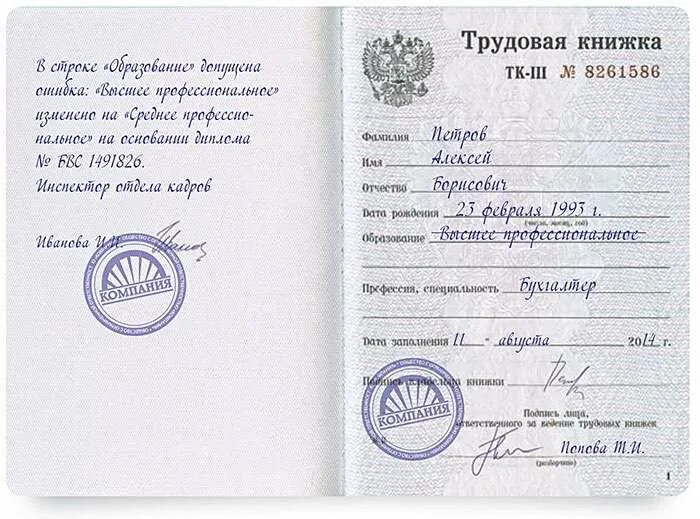 В строке «Образование» допущена
ошибка: «Высшее профессиональное»
изменено на «Среднее профессио-
нальное» на основании диплома
№ FBC 1491826.
Инспектор отдела кадров
Иванова И.И.
КОМПАНИЯ
Трудовая книжка
ТК-III № 8261586
Фамилия Петров
Имя Алексей
Отчество Борисович
Дата рождения 23 февраля 1993 г.
(число, месяц, год)
Образование Высшее профессиональное
Профессия, специальность Бухгалтер
Дата заполнения 11 - августа 2014 г.
Подпись владельца книжки
КОМПАНИЯ
Подпись лица,
ответственного за ведение трудовых книжек
Попова Т.И.
(разборчиво)
1